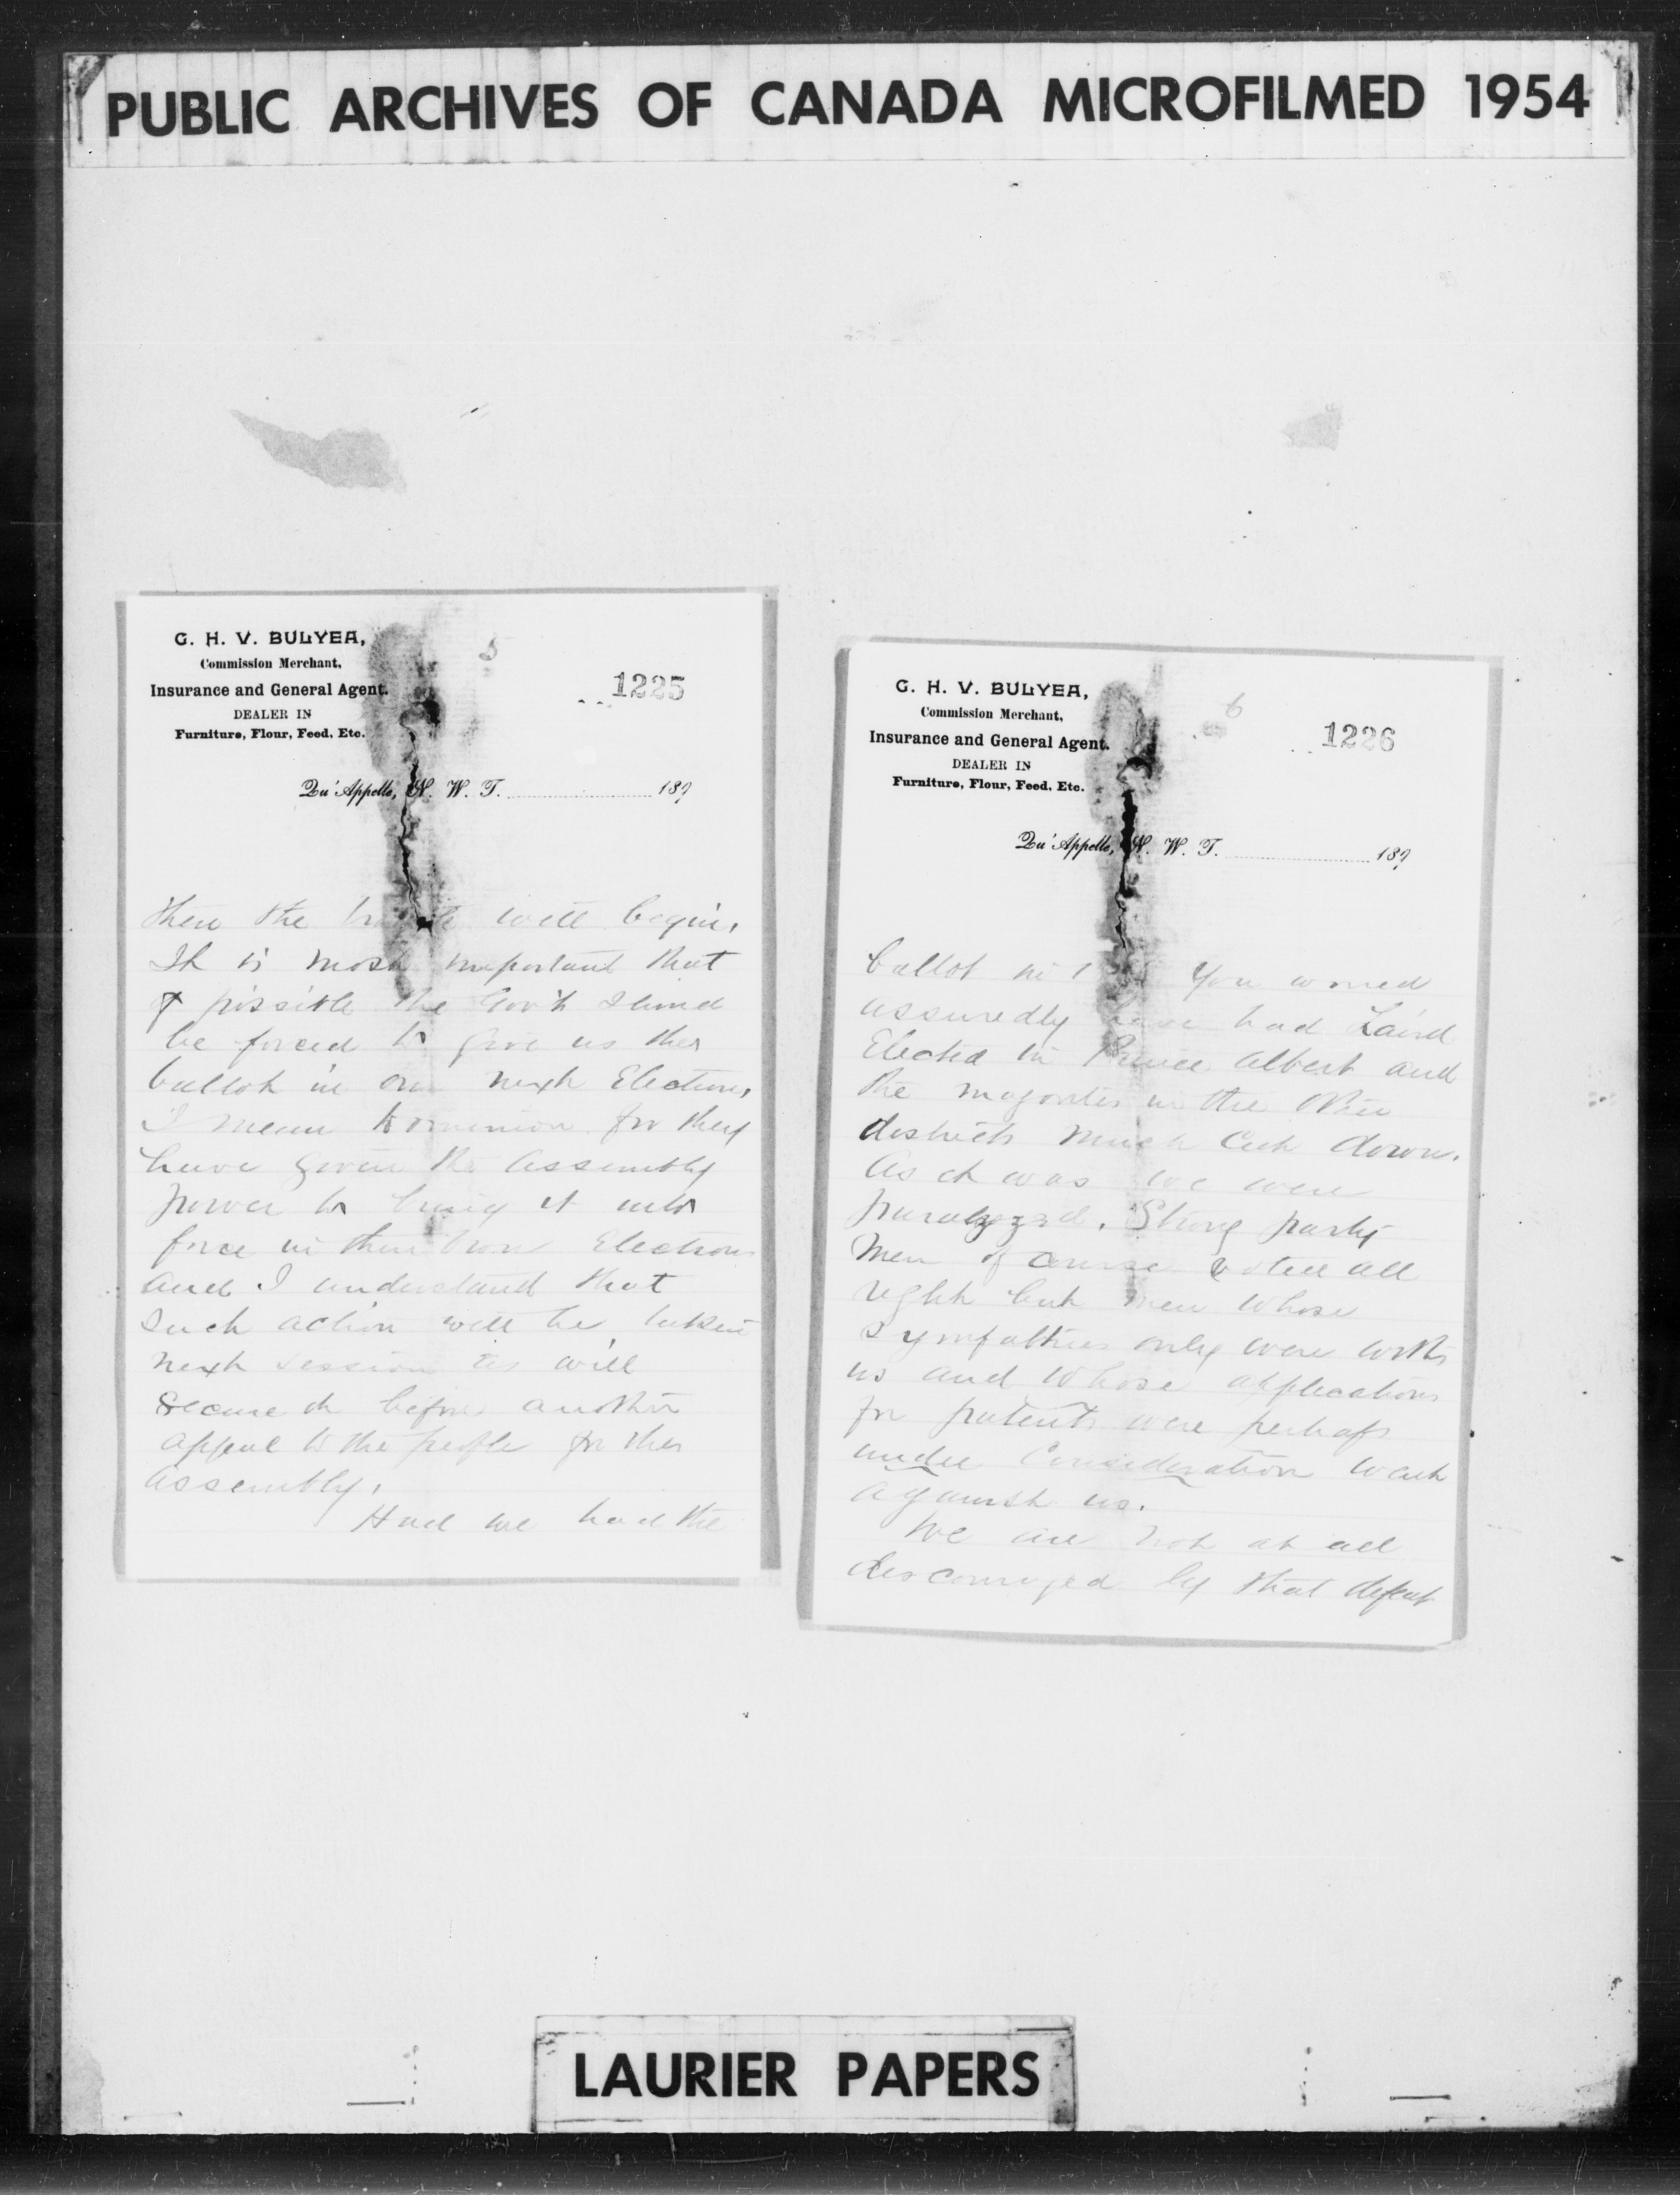 PUBLIC ARCHIVES OF CANADA MICROFILMED 1954
G. H. V. BULYEA,
Commission Merchant,
Insurance and General Agent.
DEALER IN
Furniture, Flour, Feed, Etc.
5
1225
Qu'Appelle, N. W. T. 189
then the will begin.
It is most important that
if possible the Gov't should
be forced to give us the
ballot in our next Elections,
I mean Dominion for they
have given the Assembly
power to bring it into
force in their own Elections
and I understand that
such action will be taken
next session as will
secure it before another
appeal to the people for the
assembly.
Had we had the
G. H. V. BULYEA,
Commission Merchant,
Insurance and General Agent.
DEALER IN
Furniture, Flour, Feed, Etc.
6
1226
Qu'Appelle, N. W. T. 189
ballot in you would
assuredly have had Laird
Elected in Prince Albert and
the majorities in the other
districts much cut down.
As it was we were
paralyzed. Strong party
men of course voted all
right but men whose
sympathies only were with
us and whose applications
for patents were perhaps
under consideration went
against us.
We are not at all
discouraged by that defeat
LAURIER PAPERS